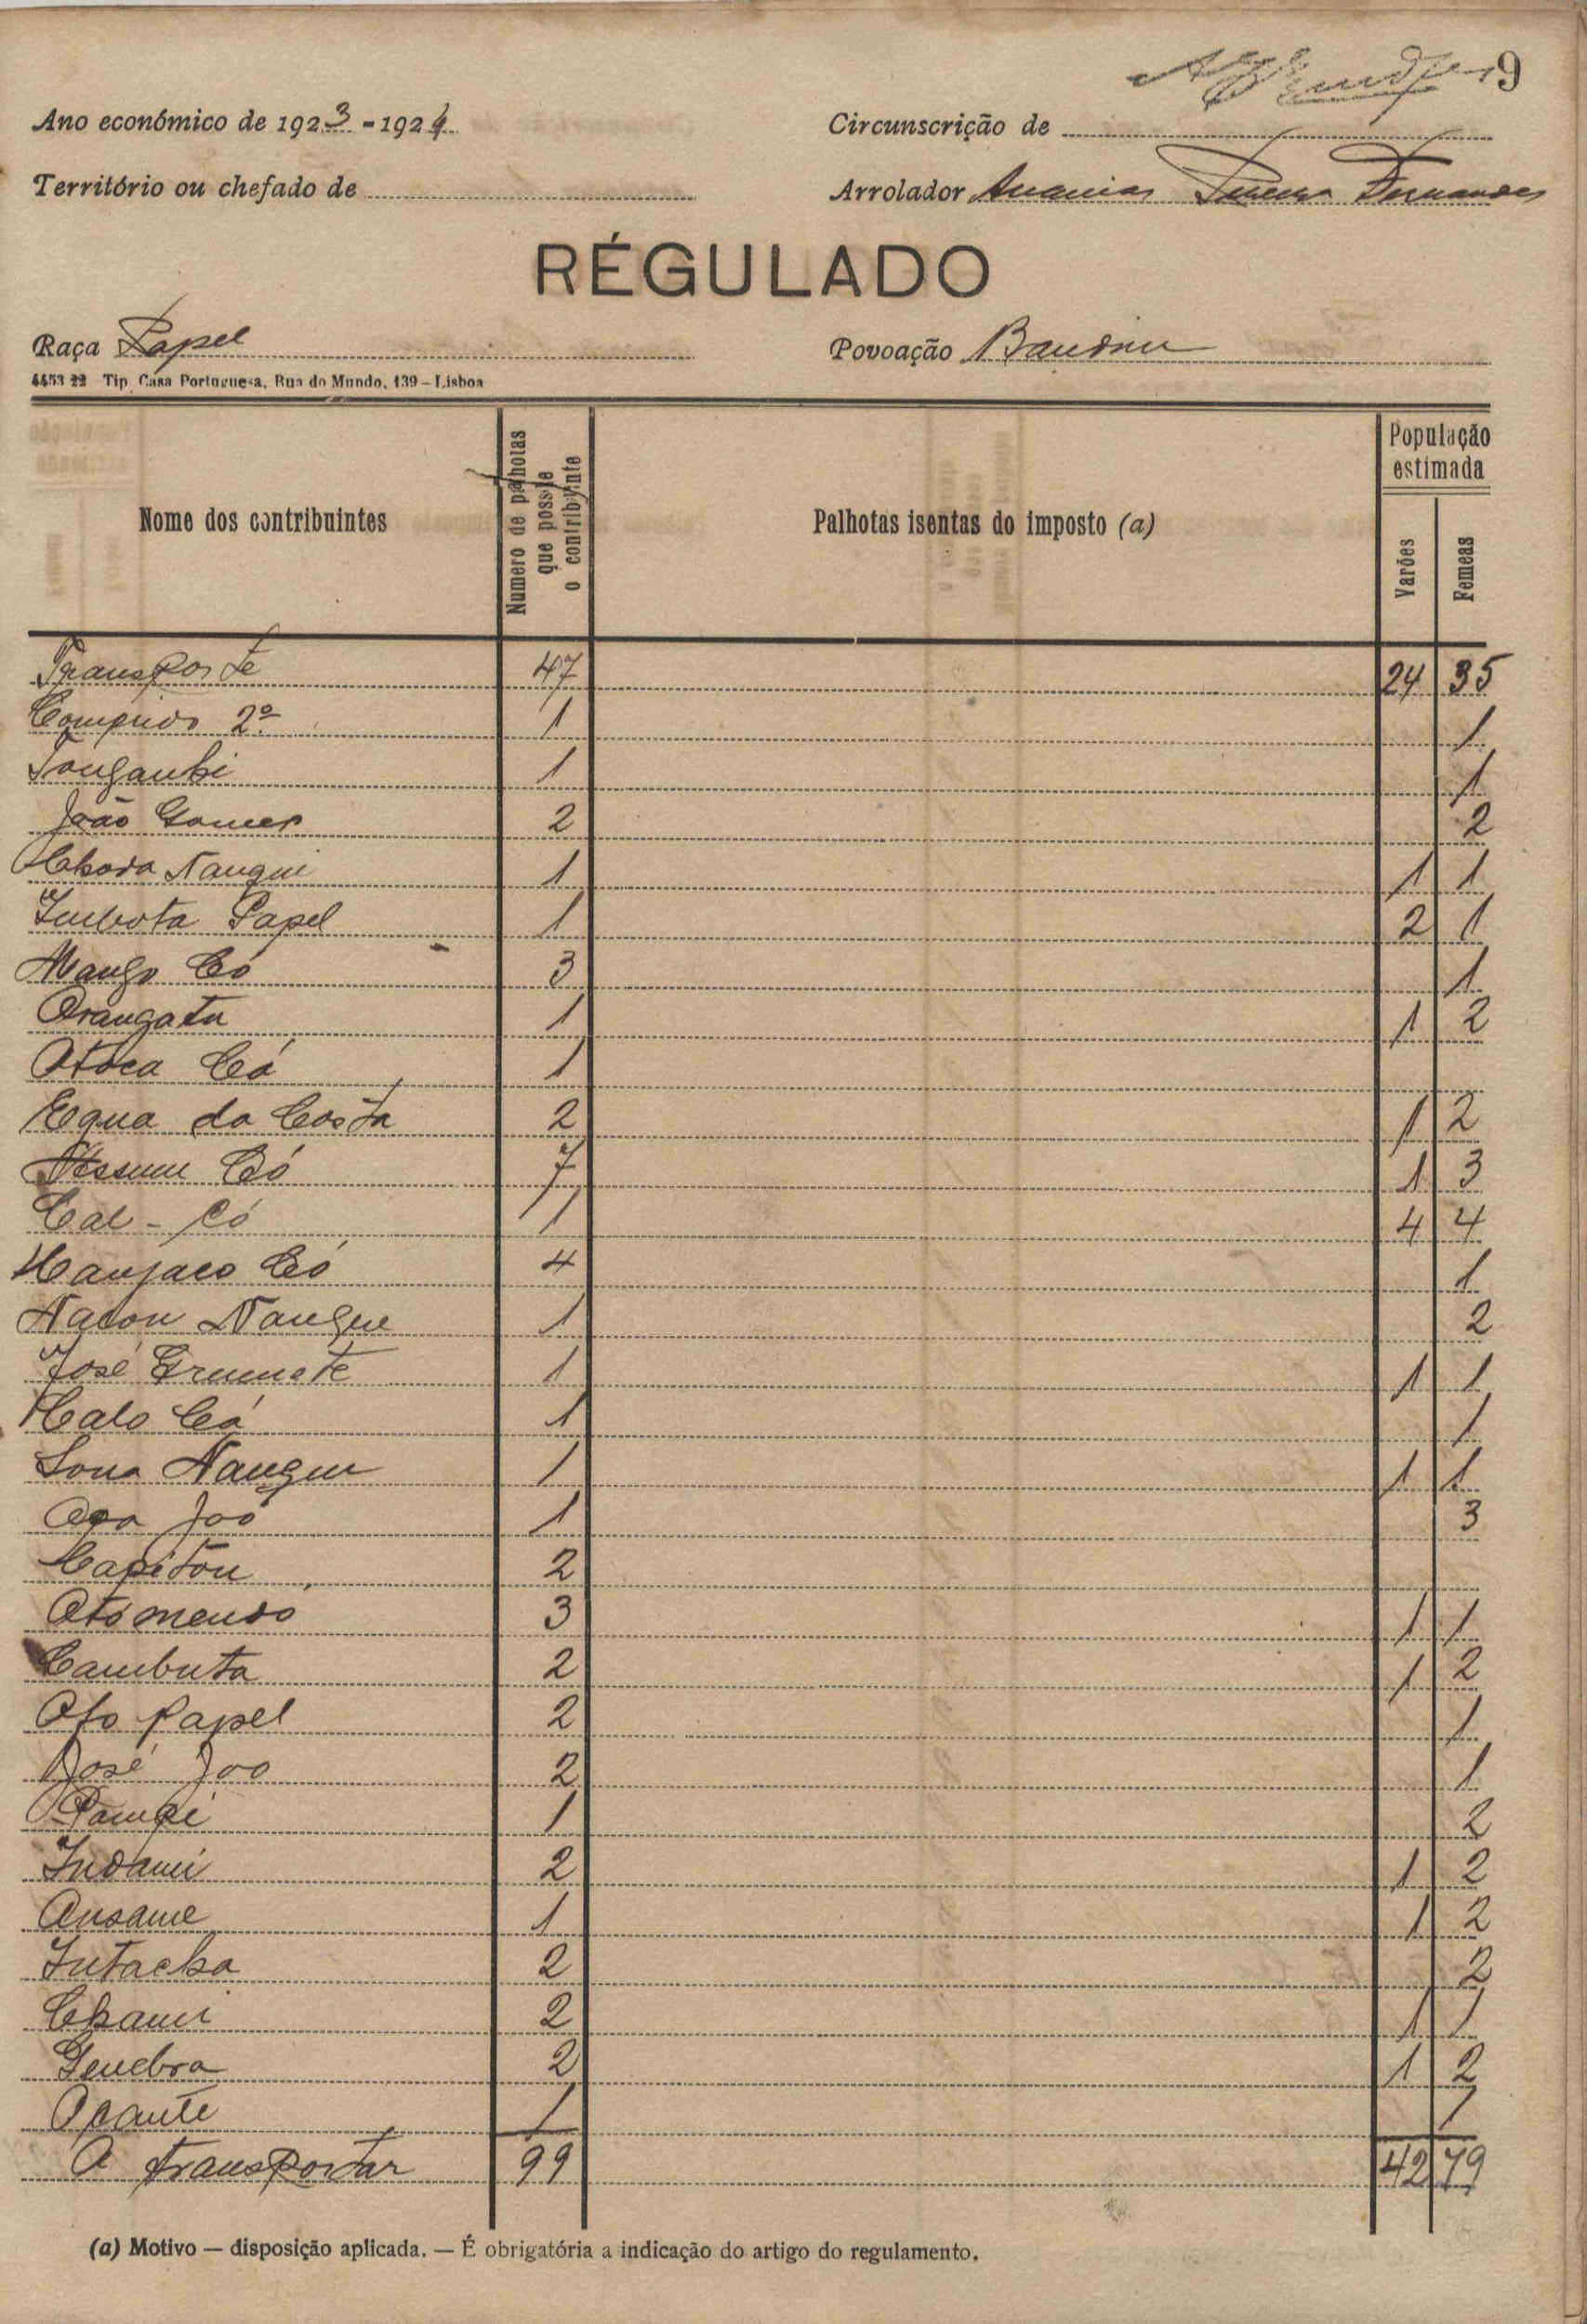 9
Ano económico de 1923-1924
Circunscrição de
Território ou chefado de
Arrolador Ananias Fernandes
RÉGULADO
Raça Papel
Povoação Bandim
4453 22 Tip. Casa Portuguesa, Rua do Mundo, 139 – Lisboa
Nome dos contribuintes
Numero de palhotas que possúe o contribuinte
Palhotas isentas do imposto (a)
População estimada
Varões
Femeas
Transporte 47 24 35
Comprido 2º 1 1
1 1
João Gomes 2 2
Nanqui 1 1 1
Imbota Papel 1 2 1
Mango Có 3 1
Orangata 1 1 2
Otoca Cá 1
Equa da Costa 2 1 2
Có 7 1 3
Cal - Có 1 4 4
Manjaco Có 4 1
Nacon Nangue 1 2
José Grumete 1 1 1
Malo Cá 1 1
Sona Nanque 1 1 1
Joó 1 3
Capiton 2
3 1 1
Cambuta 2 1 2
Ofo Papel 2 1
José Joo 2 1
Pampi 1 2
Indami 2 1 2
Ansame 1 1 2
Intacha 2 2
Chami 2 1 1
Genebra 2 1 2
Ocante 1 1
A transportar 99 42 79
(a) Motivo — disposição aplicada. — É obrigatória a indicação do artigo do regulamento.